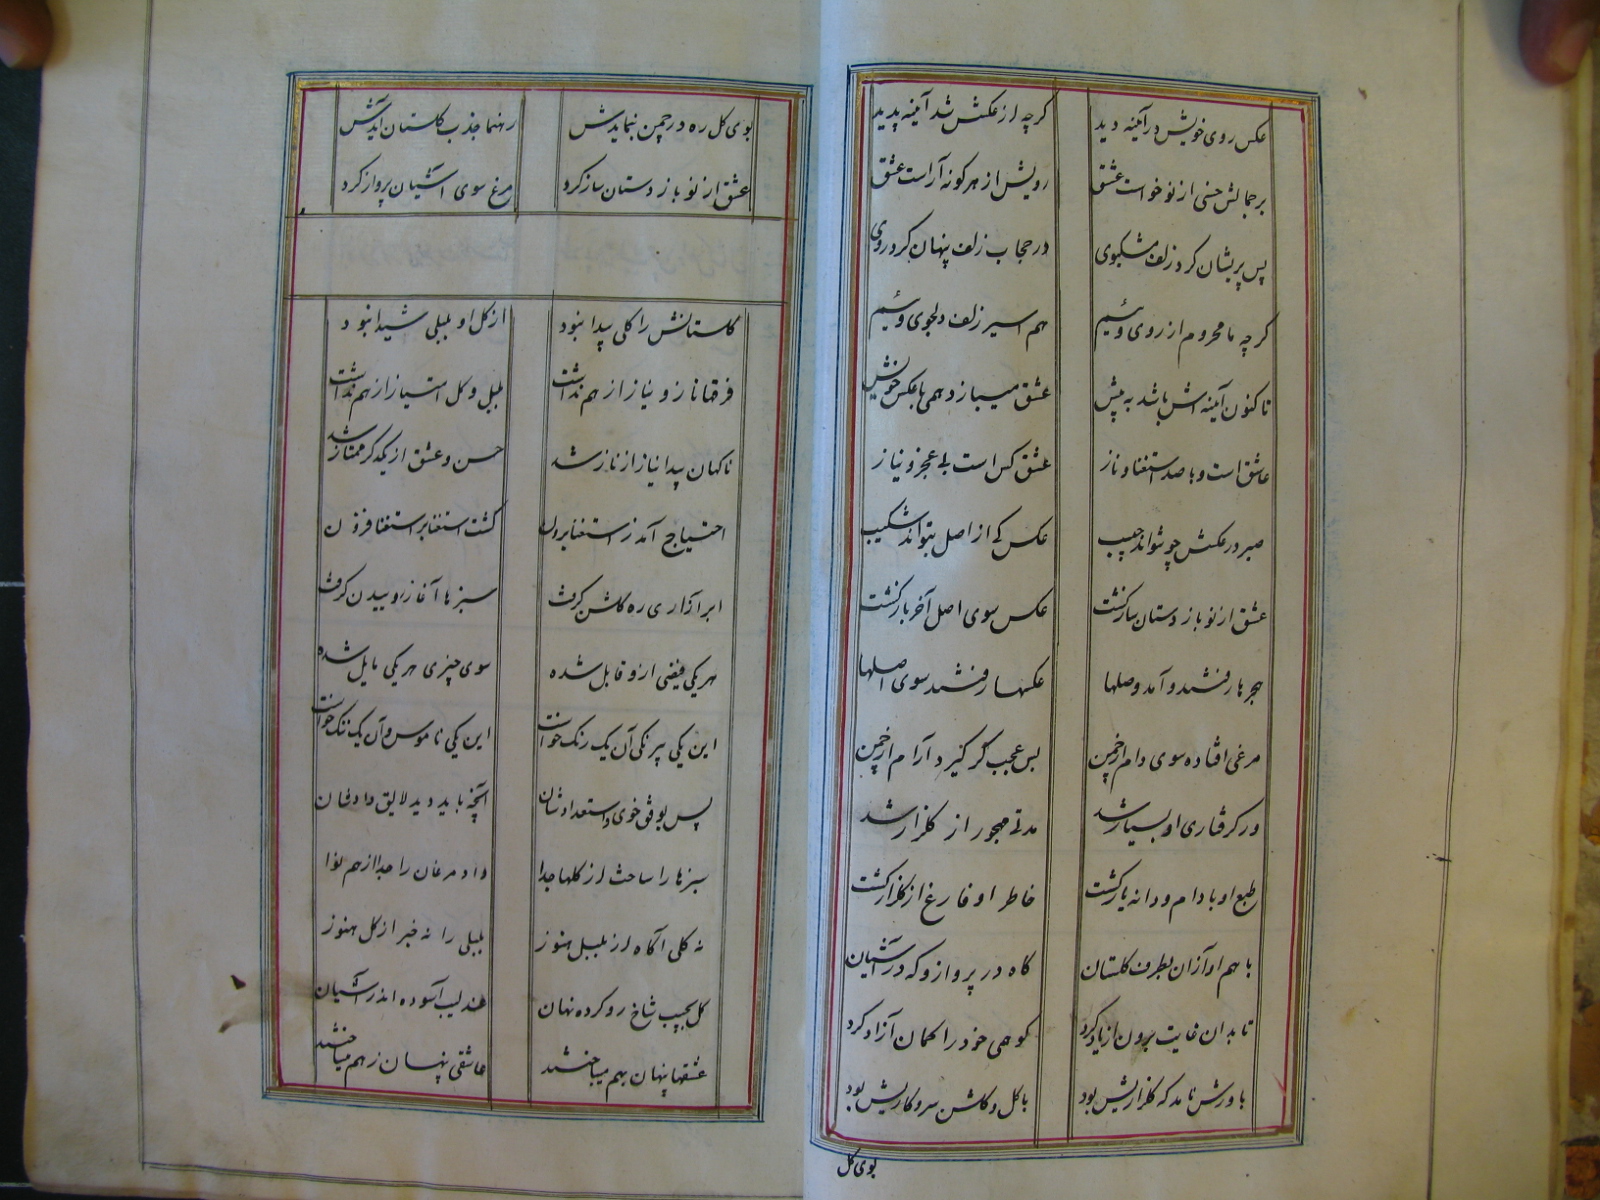 عکس روی خویش در آئینه دید گرچه از عکسش شد آئینه پدید
بر جمالش حسنی از نو خواست عشق رویش از هرگونه آراست عشق
پس پریشان کرد زلف مشکبوی در حجاب زلف پنهان کرد روی
گرچه ما محروم از روی وئیم هم اسیر زلف دلجوی وئیم
تا کنون آینه اش باشد به پیش عشق میبازد همی با عکس خویش
عاشق است و با صد استغنا و ناز عشق کس است بی عجز و نیاز
صبر در عکسش چو نتواند حبیب عکس کی از اصل بتواند شکیب
عشق از نو باز دستان ساز گشت عکس سوی اصل آخر باز گشت
هجرها رفتند و آمد وصلها عکسها رفتند سوی اصلها
مرغی افتاده سوی دام از چمن بس عجب گر گیرد آرام از چمن
ور گرفتاری او بسیار شد مدتی مهجور از گلزار شد
طبع او با دام و دانه یار گشت خاطر او فارغ از گلزار گشت
با هم آوازان بطرف گلستان گاه در پرواز و گه در آشیان
تا بدان غایت برون از یاد کرد که همی خود را گمان آزاد کرد
باورش نامد که گلزاریش بود با گل و گلشن سر و کاریش بود
بوی گل
بوی گل ره در چمن ننمایدش رهنما جذب گلستان آیدش
عشق از نو باز دستان ساز کرد مرغ سوی آشیان پرواز کرد
گلستانش را گلی پیدا نبود از گل او بلبلی شیدا نبود
فرقها ناز و نیاز از هم نداشت بلبل و گل امتیاز از هم نداشت
ناگهان پیدا نیاز از ناز شد حسن و عشق از یکدگر ممتاز شد
احتیاج آمد ز استغنا برون گشت استغنا بر استغنا فزون
ابر آزاری ره گلشن گرفت سبزها آغاز روییدن گرفت
هر یکی فیضی ازو قابل شده سوی چیزی هر یکی مایل شده
این یکی بیرنگی آن یک رنگ خواست این یکی ناموس و آن یک ننگ خواست
پس بوفق خوی و استعدادشان آنچه باید دید لایق دادشان
سبزها را ساخت از گلها جدا داد مرغان را جدا از هم نوا
نه گلی آگاه از بلبل هنوز بلبلی را نه خبر از گل هنوز
گل بجیب شاخ رو کرده نهان عندلیب آسوده اندر آشیان
عشقها پنهان بهم میباختند عاشقی پنهان ز هم میباختند